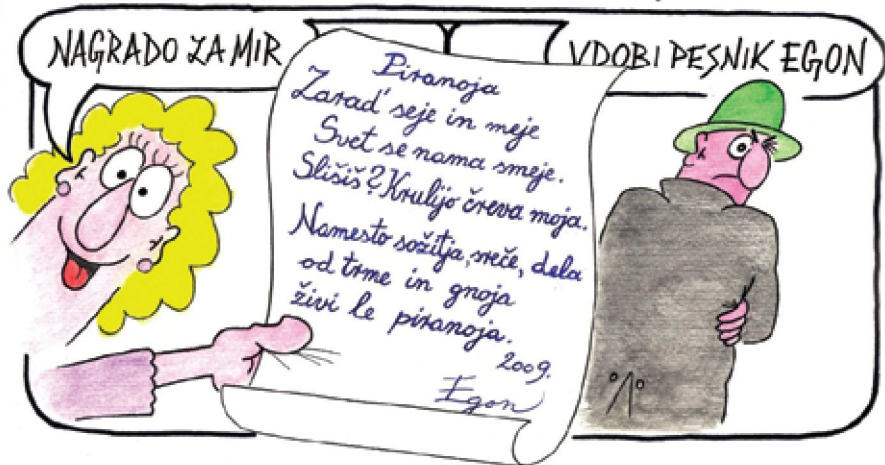 NAGRADO ZA MIR
VDOBI PESNIK EGON
Piranoja
Zarad' seje in meje
Svet se nama smeje.
Slišiš? Krulijo čreva moja.
Namesto sožitja, sreče, dela
od trme in gnoja
živi le piranoja.
2009.
Egon